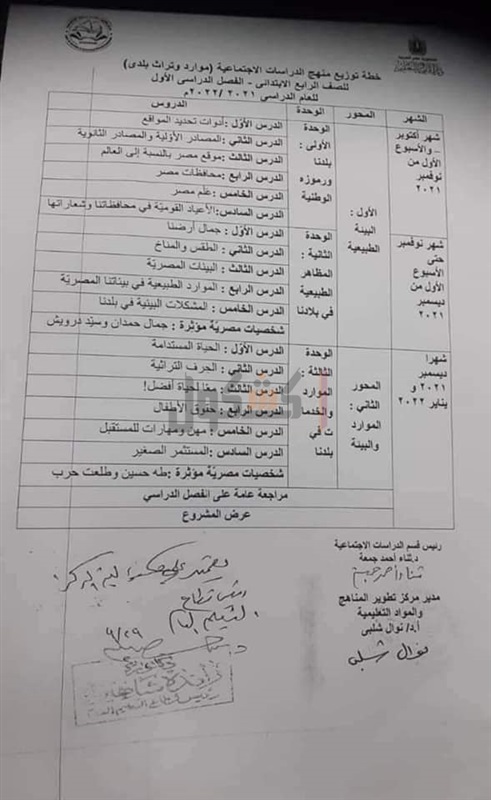 خطة توزيع منهج الدراسات الاجتماعية (موارد وتراث بلدى)
للصف الرابع الابتدائى - الفصل الدراسى الأول
للعام الدراسي ٢٠٢١ /٢٠٢٢م
الشهر المحور الوحدة الدروس
شهر أكتوبر – والأسبوع الأول من نوفمبر ٢٠٢١
الأول : البيئة الطبيعية
الوحدة الأولى : بلدنا ورموزه الوطنية
الدرس الأوّل : أدوات تحديد المواقع
الدرس الثاني : المصادر الأولية والمصادر الثانوية
الدرس الثالث : موقع مصر بالنسبة إلى العالم
الدرس الرابع : محافظات مصر
الدرس الخامس : علَم مصر
الدرس السادس:الأعياد القوميّة في محافظاتنا وشعاراتها
شهر نوفمبر حتى الأسبوع الأول من ديسمبر ٢٠٢١
الوحدة الثانية : المظاهر الطبيعية في بلادنا
الدرس الأوّل : جمال أرضنا
الدرس الثاني : الطقس والمناخ
الدرس الثالث : البيئات المصريّة
الدرس الرابع : الموارد الطبيعية في بيئاتنا المصريّة
الدرس الخامس : المشكلات البيئية في بلدنا
شخصيات مصريّة مؤثرة : جمال حمدان وسيّد درويش
شهرا ديسمبر ٢٠٢١ و يناير ٢٠٢٢
المحور الثاني : الموارد والبيئة
الوحدة الثالثة : الموارد والخدما ت في بلدنا
الدرس الأوّل : الحياة المستدامة
الدرس الثاني : الحرف التراثية
الدرس الثالث : معًا لحياة أفضل!
الدرس الرابع : حقوق الأطفال
الدرس الخامس : مهن ومهارات للمستقبل
الدرس السادس : المستثمر الصغير
شخصيات مصريّة مؤثرة :طه حسين وطلعت حرب
مراجعة عامة على الفصل الدراسي
عرض المشروع
رئيس قسم الدراسات الاجتماعية
د.ثناء أحمد جمعة
ثناء أحمد جمعة
مدير مركز تطوير المناهج
والمواد التعليمية
أ.د/ نوال شلبى
نوال شلبى
رئيس قطاع
التعليم العام
٩/٢٩